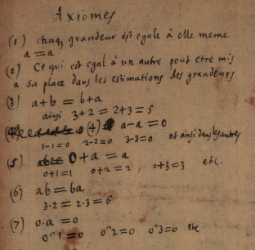 Axiomes
(1) chaq grandeur est egale à elle meme
a = a
(2) Ce qui est egal à un autre peut etre mis
a sa place dans les estimations des grandeurs
(3) a+b = b+a
ainsi 3+2 = 2+3 = 5
(4) a-a = 0
1-1=0 2-2=0 3-3=0 et ainsi dans les autres
(5) 0+a = a
0+1=1 0+2=2, 0+3=3 etc.
(6) ab = ba
3·2 = 2·3 = 6
(7) 0·a = 0
0^1=0 0^2=0 0^3=0 etc